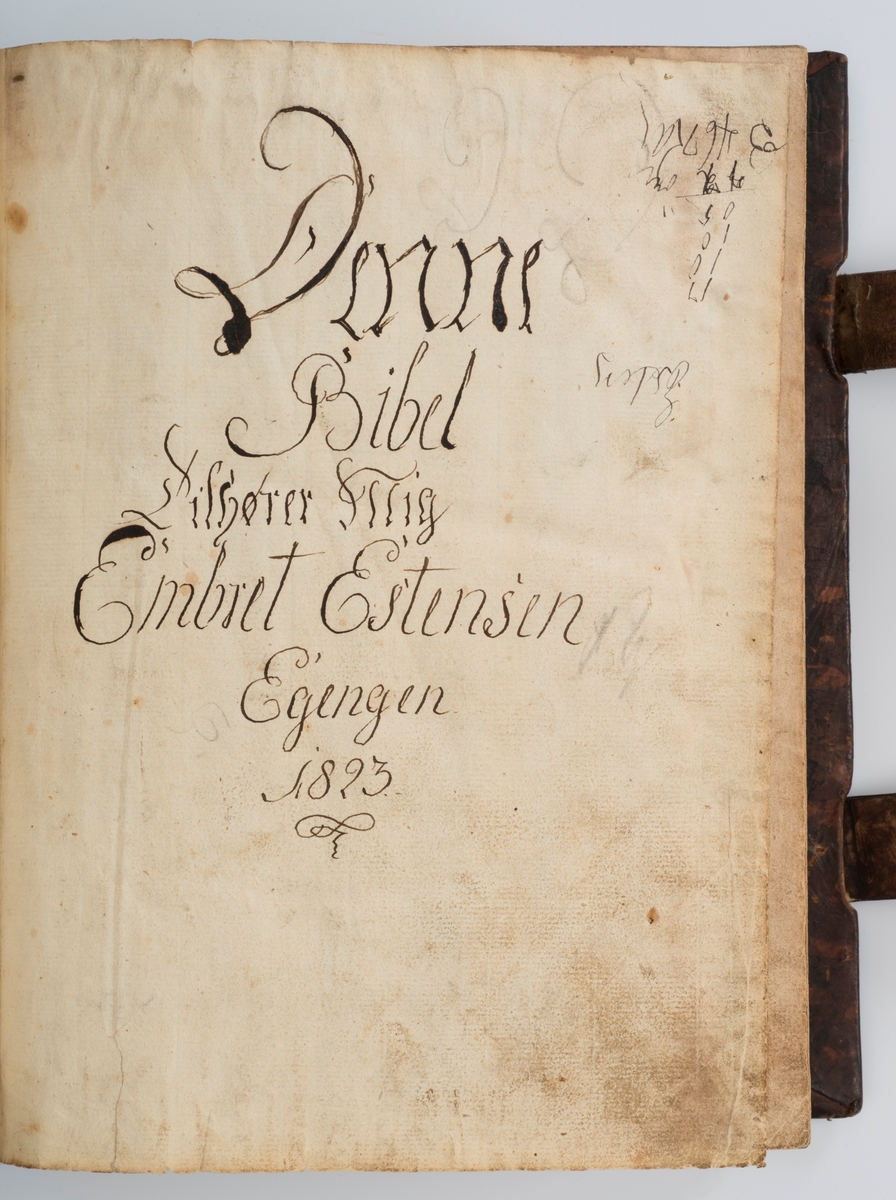 Denne
Bibel
Tilhører Mig
Embret Estensen
Egengen
1823.